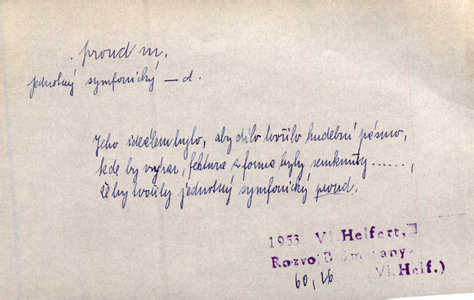 proud m.
jednotný symfonický – d.
Jeho ideálem bylo, aby dílo tvořilo hudební pásmo,
kde by výraz, faktura a forma byly semknuty ......,
že by tvořily jednotný symfonický proud.
1953 Vl. Helfert,
Rozvoj B. Smetany-
Vl. Helf.)
60, 26